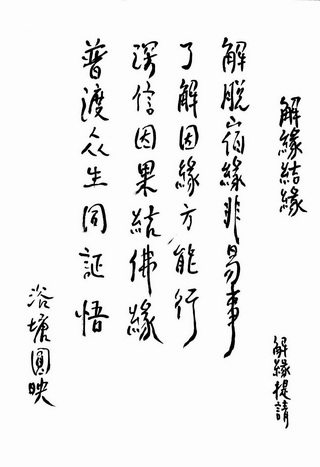 解緣結緣
解緣提請
解脫宿緣非易事
了解因緣方能行
深信因果結佛緣
普渡众生同証悟
浴塘圓映